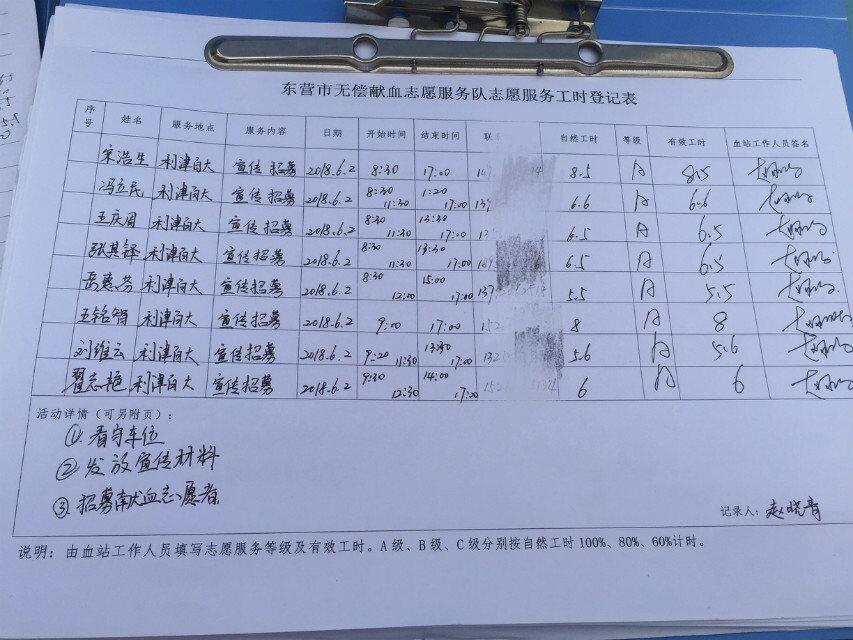 东营市无偿献血志愿服务队志愿服务工时登记表
序号 姓名 服务地点 服务内容 日期 开始时间 结束时间 联系 自然工时 等级 有效工时 血站工作人员签名
宋浩生 利津百大 宣传招募 2018.6.2 8:30 17:00 8.5 A 8.5
冯立民 利津百大 宣传招募 2018.6.2 8:30 11:30 1:20 17:00 6.6 A 6.6
王庆国 利津百大 宣传招募 2018.6.2 8:30 11:30 13:30 17:00 6.5 A 6.5
张其铎 利津百大 宣传招募 2018.6.2 8:30 11:30 13:30 17:00 6.5 A 6.5
岳惠芬 利津百大 宣传招募 2018.6.2 8:30 12:00 15:00 17:00 5.5 A 5.5
王铭智 利津百大 宣传招募 2018.6.2 9:00 17:00 8 A 8
刘维云 利津百大 宣传招募 2018.6.2 9:20 11:30 13:30 17:00 5.6 A 5.6
翟志艳 利津百大 宣传招募 2018.6.2 9:30 12:30 14:00 17:00 6 A 6
活动详情（可另附页）：
①看守车位
②发放宣传材料
③招募献血志愿者
记录人：赵晓青
说明：由血站工作人员填写志愿服务等级及有效工时。A级、B级、C级分别按自然工时100%、80%、60%计时。